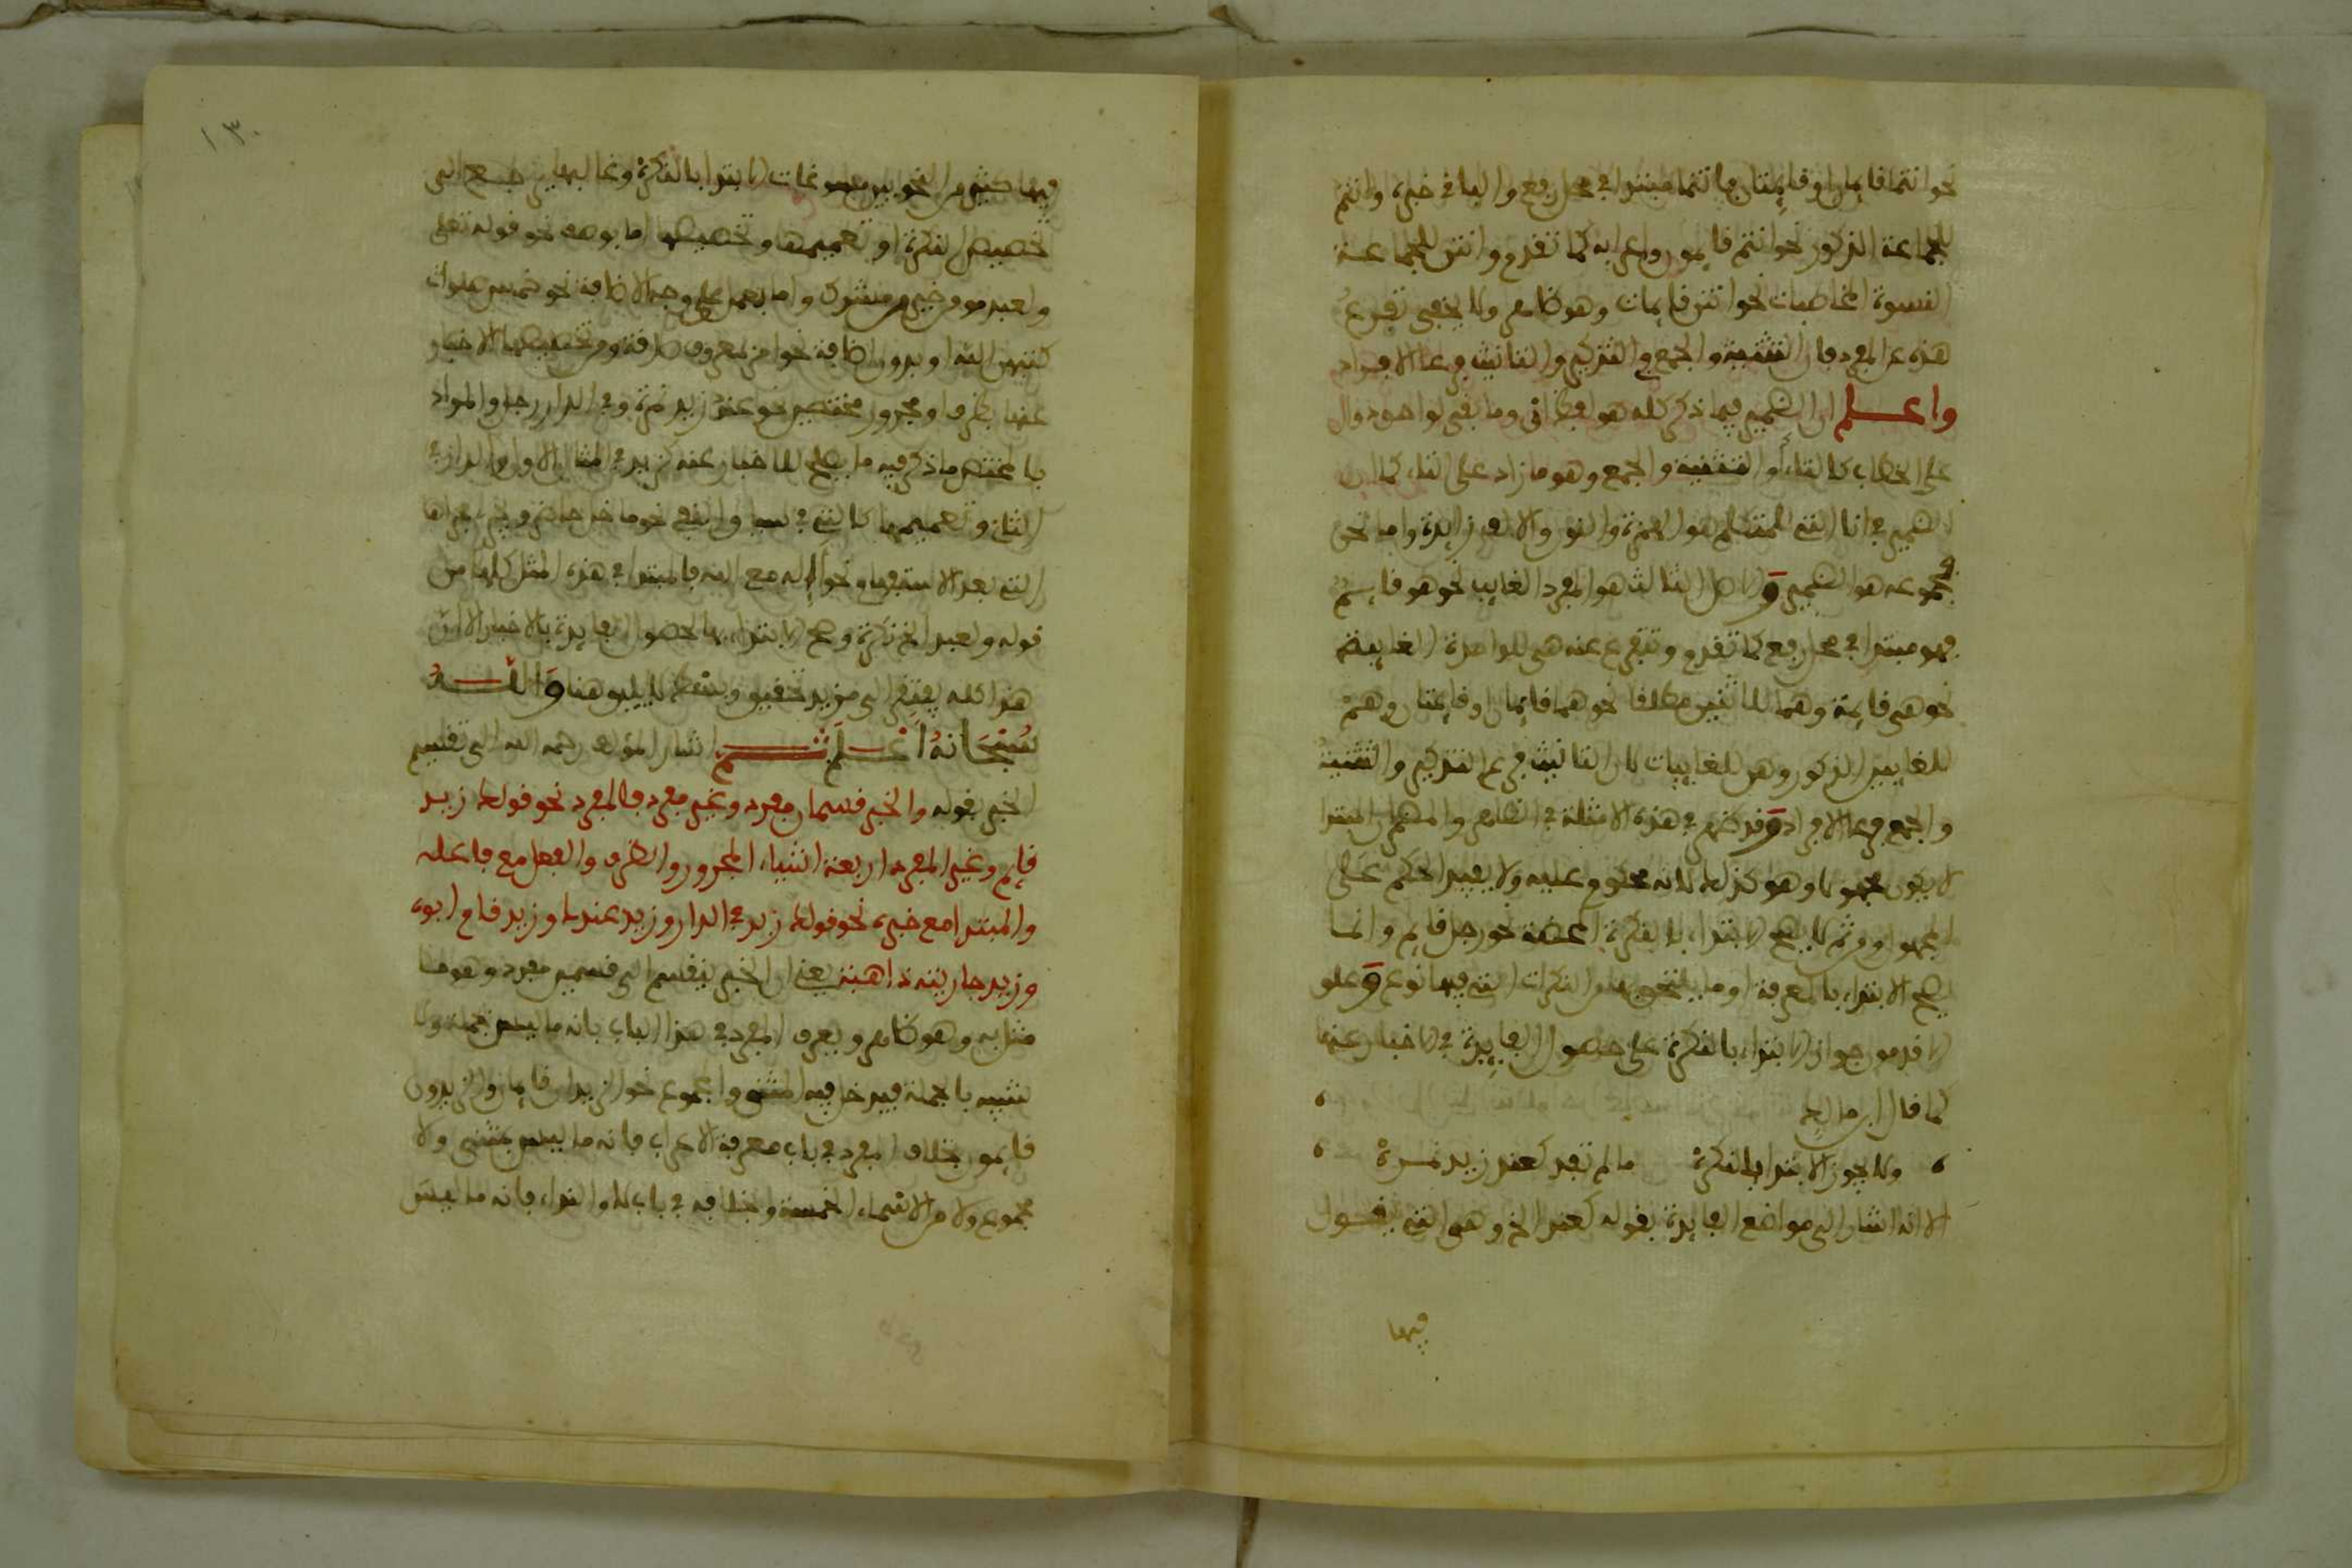 نحو انتما قايمان او قايمتان فانتما مبتدا في محل رفع والباقي خبره وانتم
للجماعة الذكور نحو انتم قايمون واعرابه كما تقدم وانتن للجماعة
النسوة المخاطبات نحو انتن قايمات وهو ظاهر ولا يخفى تفرع
هذه عن المفرد فان التثنية والجمع والتذكير والتانيث فرعا الافراد
واعلم ان الضمير فيما ذكر كله هو ان فقط وما بقي لواحق دوال
على الخطاب كالتاء او التثنية والجمع وهو ما زاد على التاء كما ان
الضمير في انا التي للمتكلم هو الهمزة والنون والالف زايدة واما نحن
فمجموعه هو الضمير والاصل الثالث هو المفرد الغايب نحو هو قايم
فهو مبتدا في محل رفع كما تقدم وتفرع عنه هي للواحدة الغايبة
نحو هي قايمة وهما للاثنين مطلقا نحو هما قايمان او قايمتان وهم
للغايبين الذكور وهن للغايبات لان التانيث فرع التذكير والتثنية
والجمع فرعا الافراد وقد ظهر في هذه الامثلة في الظاهر والمضمر ان المبتدا
لا يكون مجهولا وهو كذلك لانه محكوم عليه ولا يفيد الحكم على
المجهول ومن ثم لا يصح الابتداء بالنكرة المحضة نحو رجل قايم وانما
يصح الابتداء بالمعرفة او ما يلتحق بها من النكرات التي فيها نوع وعلو
الاقدمون جواز الابتداء بالنكرة على حصول الفايدة في الاخبار عنها
كما قال ابن مالك
ولا يجوز الابتدا بالنكرة ما لم تفد كعند زيد نمرة
الا انه اشار الى مواضع الفايدة بقوله كعند الخ وهي التي يقول
فيها
١٣٠
فيها كثير من النحويين مسوغات الابتدا بالنكرة وغالبها يرجع الى
تخصيص النكرة او تعميمها وتخصيصها اما بوصف نحو قوله تعلى
ولعبد مومن خير من مشرك واما بعمل على وجه الاضافة نحو خمس صلوات
كتبهن الله او بدون اضافة نحو امر بمعروف صدقة ومن تخصيصها الاخبار
عنها بظرف او مجرور مختصين نحو عند زيد نمرة وفي الدار رجل والمراد
بالمختص ما ذكر فيه ما يصلح للاخبار عنه كزيد في المثال الاول والدار في
الثاني وتعميمها كالتي في سياق النفي نحو ما خل لنا وخبرها
التي بعد الاستفهام نحو اإله مع الله فالمبتدا في هذه المثل كلها من
قوله ولعبد الخ نكرة وصح الابتداء بها لحصول الفايدة بالاخبار الا ان
هذا كله يفتقر الى مزيد تحقيق وبسط لا يليق هنا والله
سبحانه اعلم ثم اشار المؤلف رحمه الله الى تقسيم
الخبر بقوله والخبر قسمان مفرد وغير مفرد فالمفرد نحو قولك زيد
قايم وغير المفرد اربعة اشياء المجرور والظرف والفعل مع فاعله
والمبتدا مع خبره نحو قولك زيد في الدار وزيد عندك وزيد قام ابوه
وزيد جاريته ذاهبة يعني ان الخبر ينقسم الى قسمين مفرد وهو ما
مثل به وهو ظاهر ويعرف المفرد في هذا الباب بانه ما ليس جملة ولا
شبيه بالجملة فيدخل فيه المثنى والمجموع نحو الزيدان قايمان والزيدون
قايمون بخلاف المفرد في باب معرفة الاعراب فانه ما ليس بمثنى ولا
مجموع ولا من الاسماء الخمسة وبخلافه في باب لا والنداء فانه ما ليس